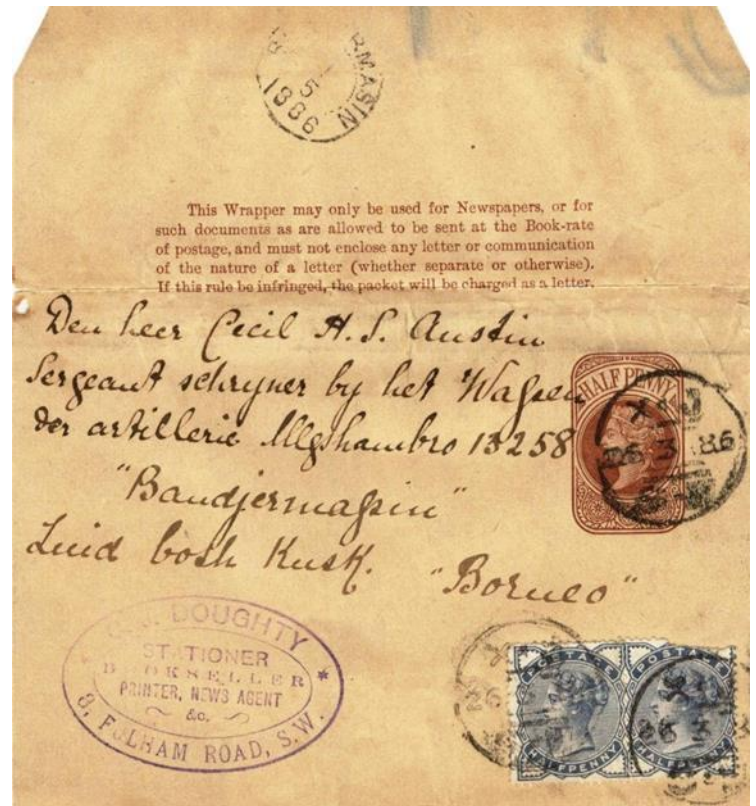 RMASIN
5
1886
This Wrapper may only be used for Newspapers, or for
such documents as are allowed to be sent at the Book-rate
of postage, and must not enclose any letter or communication
of the nature of a letter (whether separate or otherwise).
If this rule be infringed, the packet will be charged as a letter.
Den heer Cecil H. S. Austin
Sergeant schryver by het Wapen
der artillerie 13258
"Bandjermasin"
Zuid Kusk. "Borneo"
HALFPENNY
X J
26 3 86
S W
DOUGHTY
STATIONER
BOOKSELLER
PRINTER, NEWS AGENT
&c.
8, FULHAM ROAD, S.W.
POSTAGE POSTAGE
HALFPENNY HALFPENNY